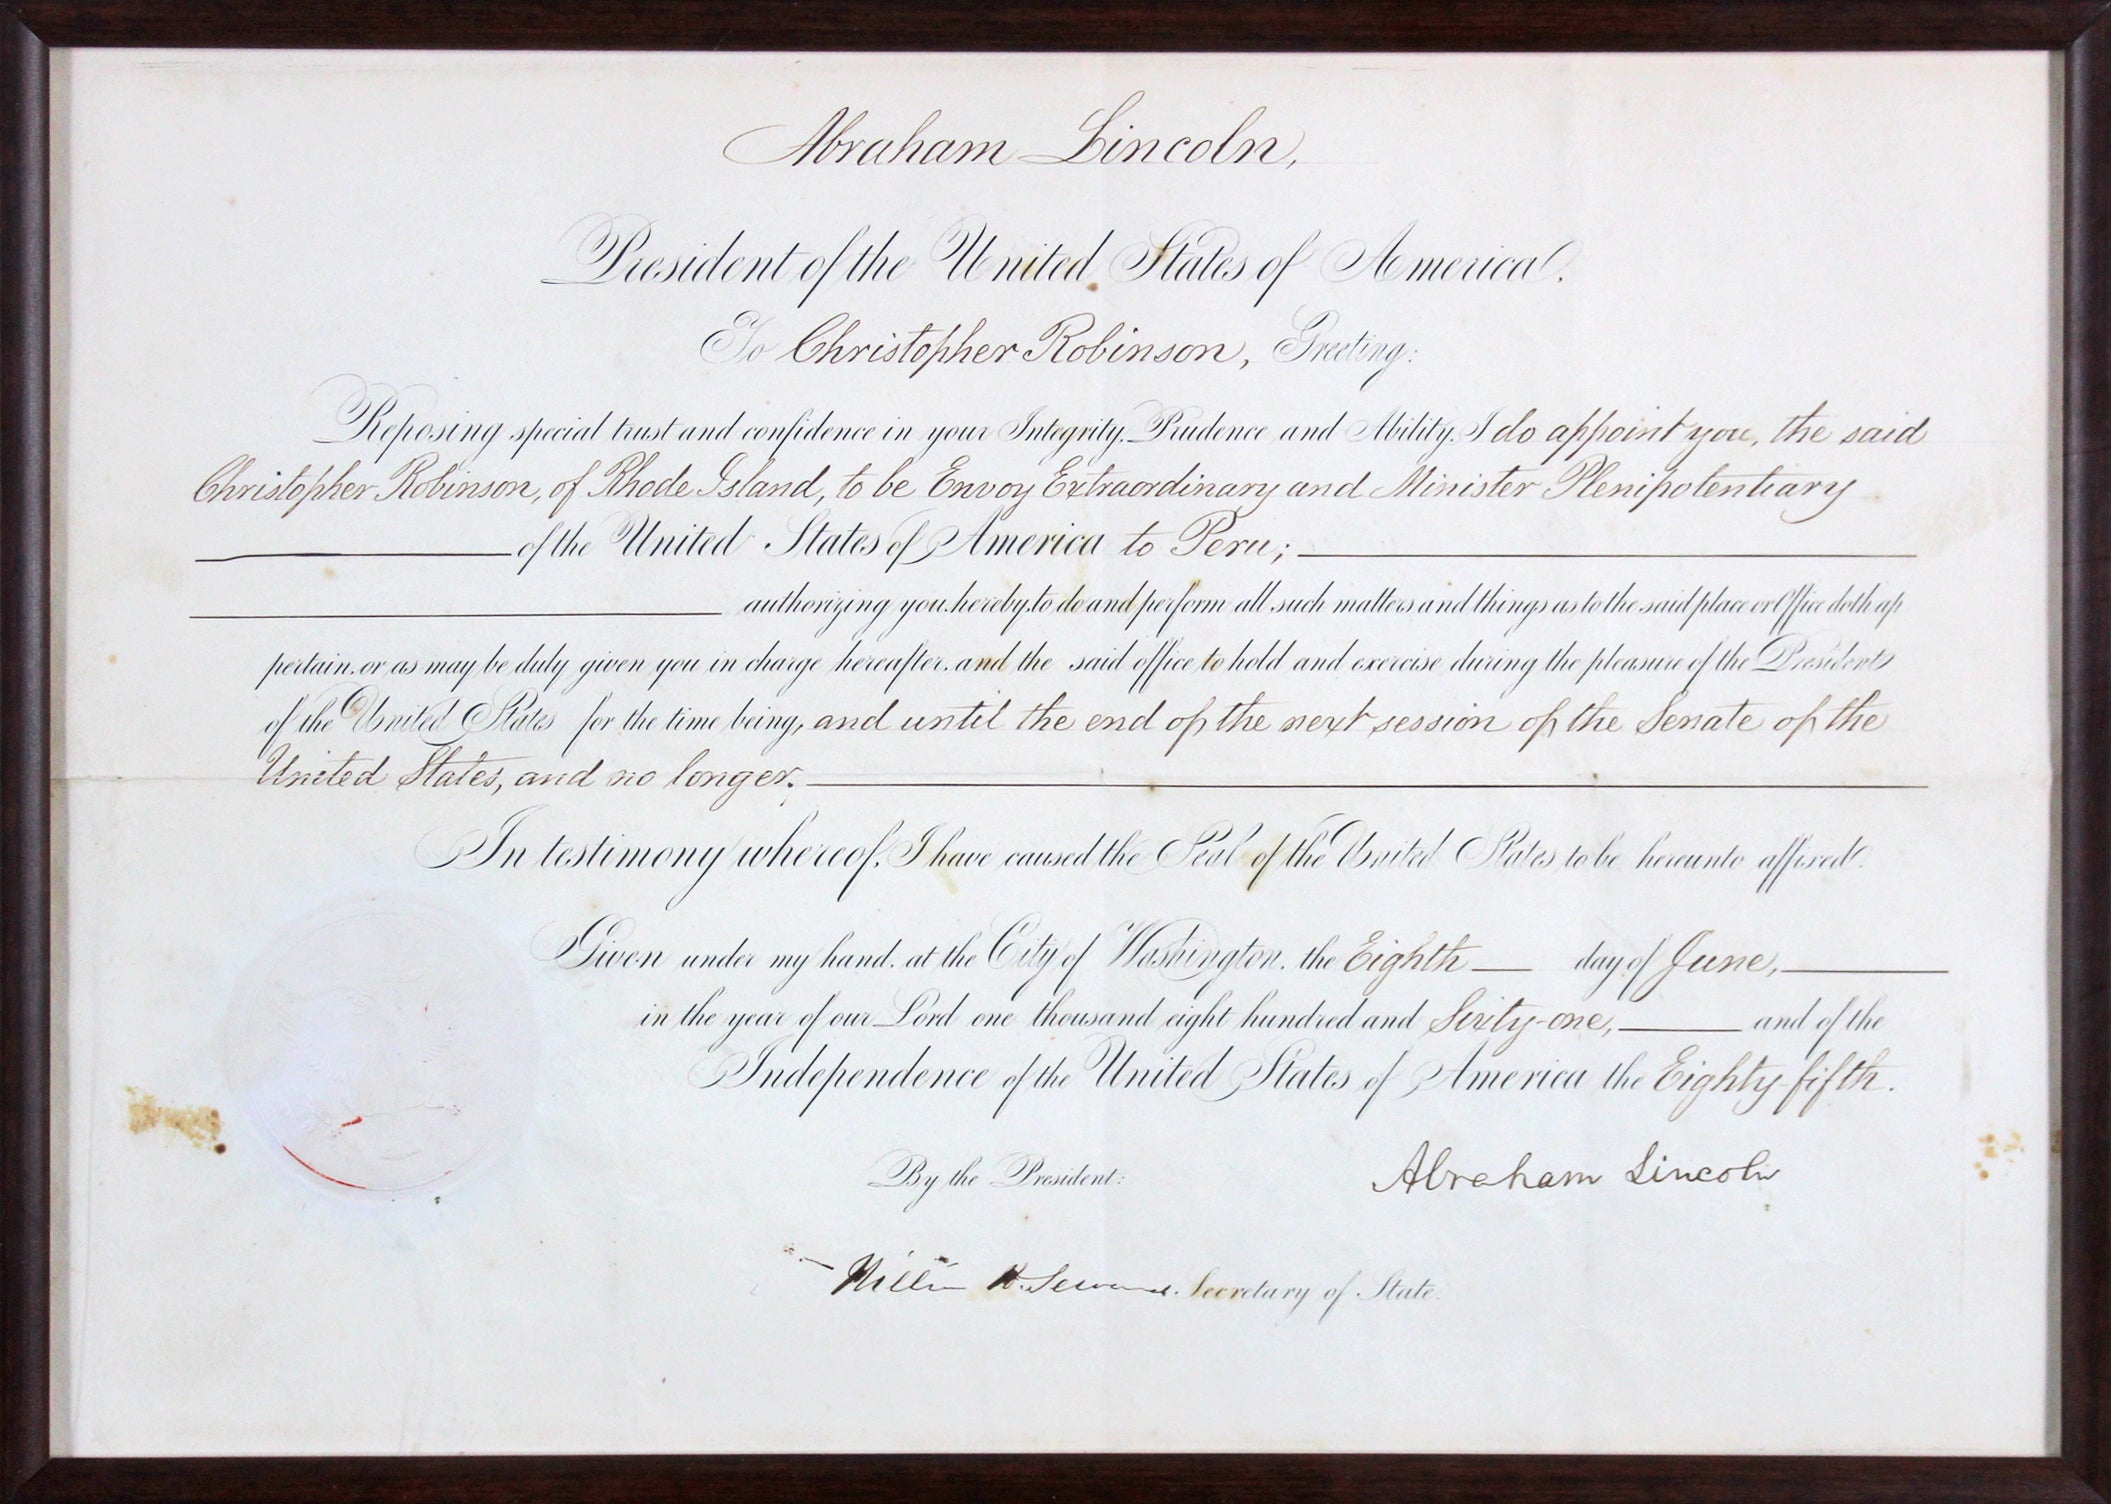 Abraham Lincoln,
President of the United States of America.
To Christopher Robinson, Greeting:
Reposing special trust and confidence in your Integrity, Prudence and Ability, I do appoint you, the said
Christopher Robinson, of Rhode Island, to be Envoy Extraordinary and Minister Plenipotentiary
of the United States of America to Peru;
authorizing you, hereby, to do and perform all such matters and things as to the said place or Office doth ap
pertain, or as may be duly given you in charge hereafter, and the said office to hold and exercise during the pleasure of the President
of the United States for the time being, and until the end of the next session of the Senate of the
United States, and no longer.
In testimony whereof, I have caused the Seal of the United States to be hereunto affixed.
Given under my hand, at the City of Washington, the Eighth day of June,
in the year of our Lord one thousand eight hundred and Sixty-one, and of the
Independence of the United States of America the Eighty-fifth.
By the President:
Abraham Lincoln
William H. Seward. Secretary of State.